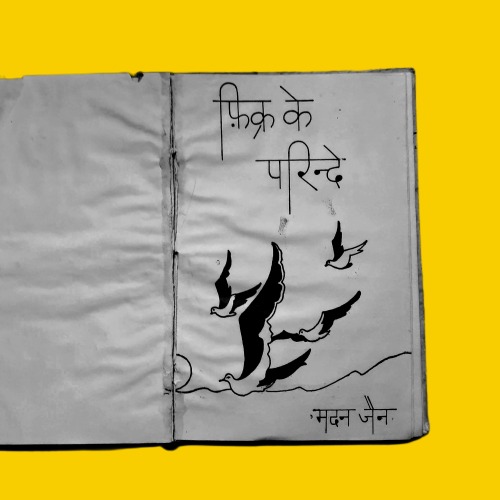 फ़िक्र के
परिन्दे
'मदन जैन'